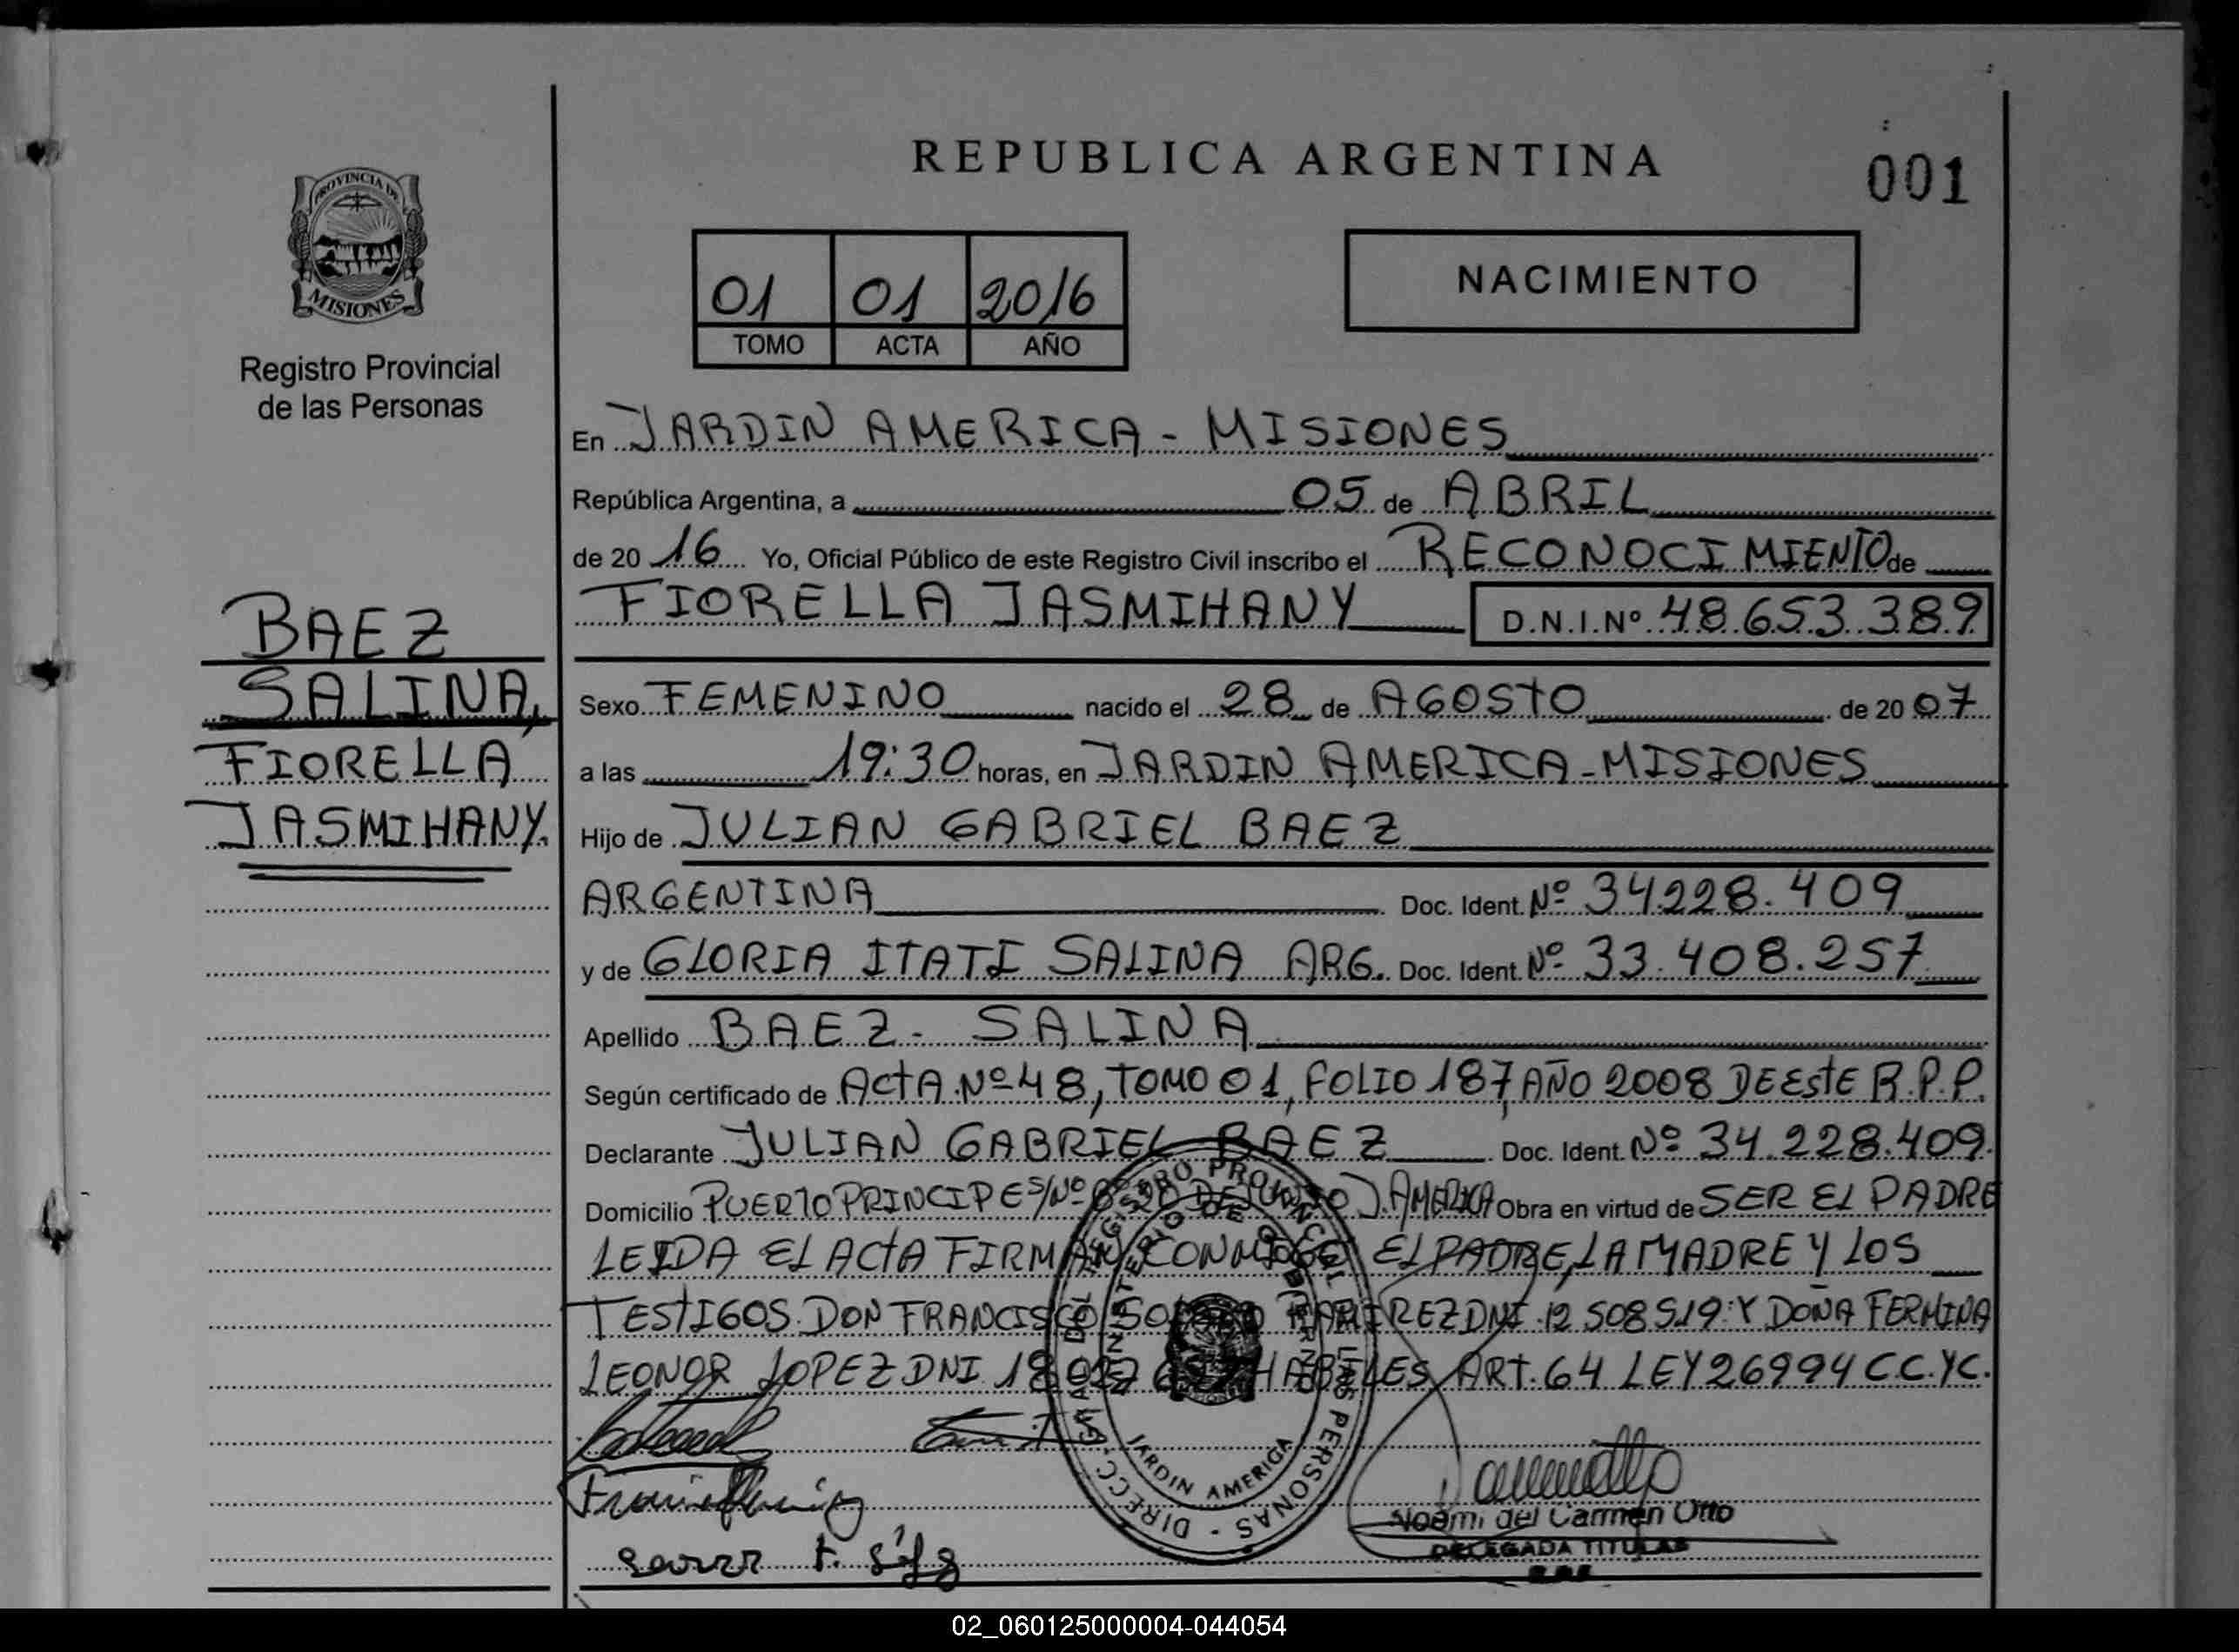 REPUBLICA ARGENTINA
001
PROVINCIA DE
MISIONES
Registro Provincial
de las Personas
01 01 2016
TOMO ACTA AÑO
NACIMIENTO
BAEZ
SALINA,
FIORELLA
JASMIHANY.
En JARDIN AMERICA - MISIONES
República Argentina, a 05 de ABRIL
de 20 16 Yo, Oficial Público de este Registro Civil inscribo el RECONOCIMIENTO de
FIORELLA JASMIHANY D.N.I.Nº 48.653.389
Sexo FEMENINO nacido el 28 de AGOSTO de 20 07
a las 19:30 horas, en JARDIN AMERICA - MISIONES
Hijo de JULIAN GABRIEL BAEZ
ARGENTINA Doc. Ident. Nº 34.228.409
y de GLORIA ITATI SALINA ARG. Doc. Ident. Nº 33.408.257
Apellido BAEZ - SALINA
Según certificado de ACTA Nº 48, TOMO 01, FOLIO 187, AÑO 2008 DE ESTE R.P.P.
Declarante JULIAN GABRIEL BAEZ Doc. Ident. Nº 34.228.409.
Domicilio PUERTO PRINCIPE S/Nº J. AMERICA Obra en virtud de SER EL PADRE
LEIDA EL ACTA FIRMAN CONMIGO EL PADRE, LA MADRE Y LOS
TESTIGOS DON FRANCISCO RAMIREZ DNI 12 508 519 Y DOÑA FERMINA
LEONOR LOPEZ DNI HABILES ART. 64 LEY 26994 C.C.YC.
JARDIN AMERICA
Noemi del Carmen Otto
DELEGADA TITULAR
02_060125000004-044054